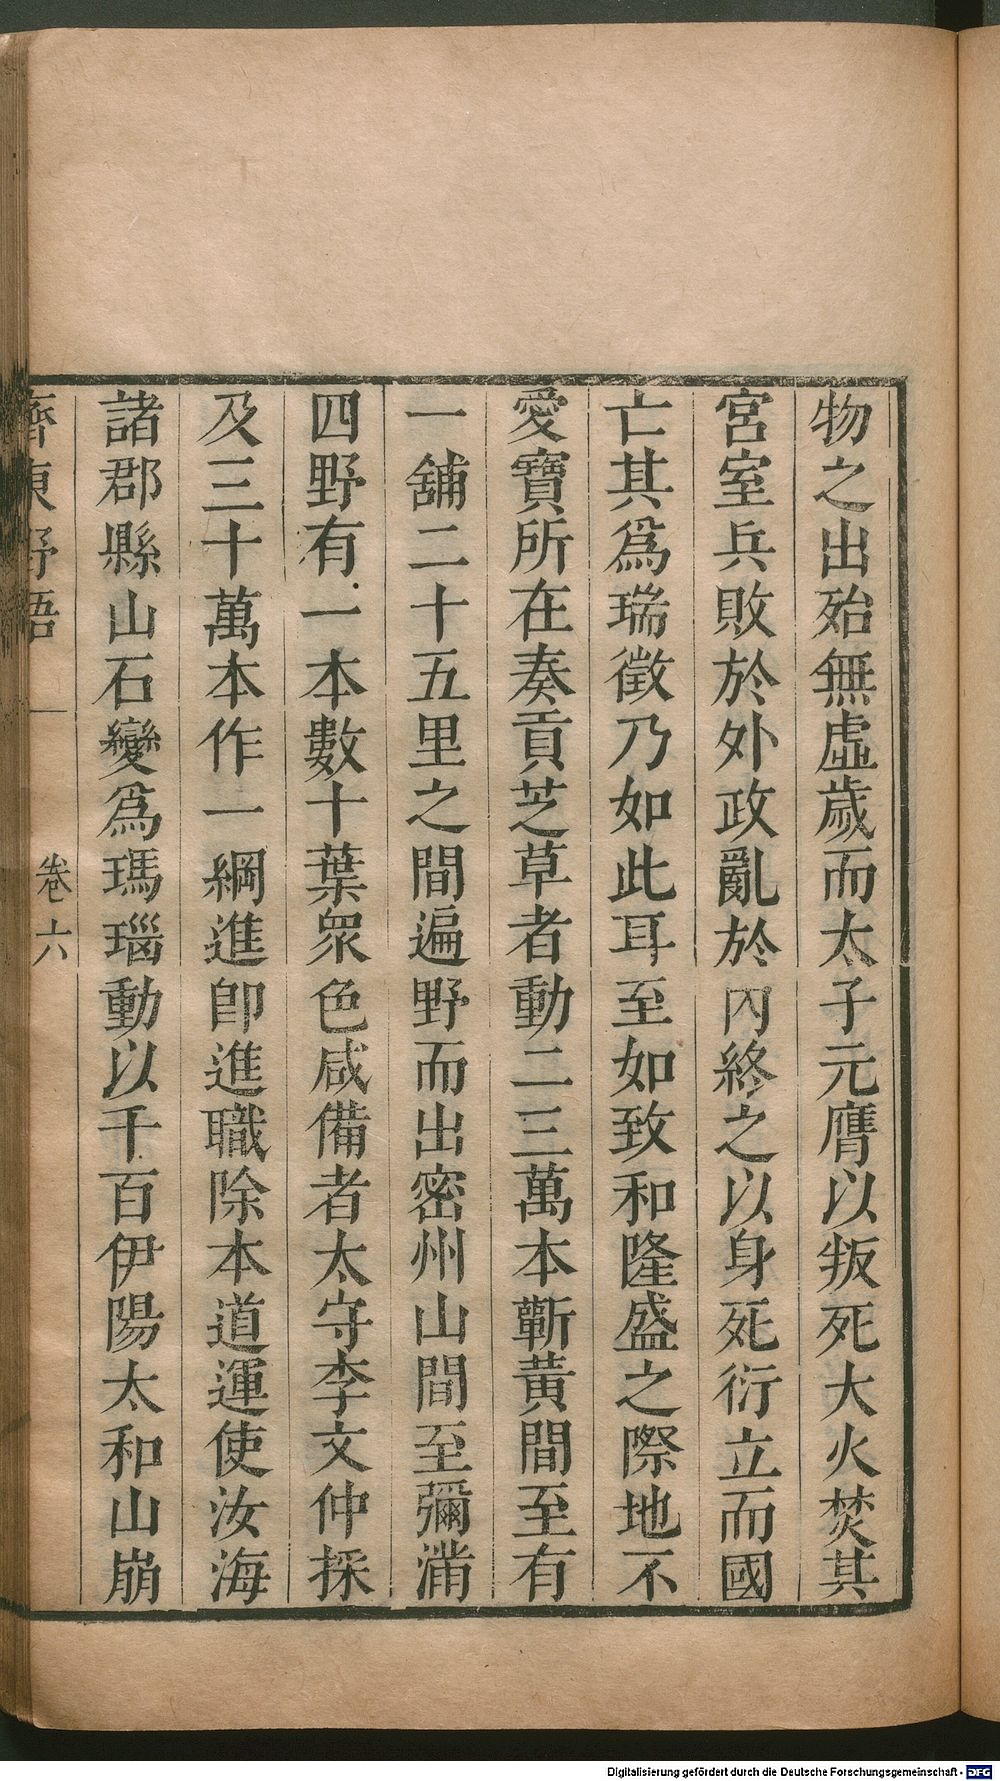 物之出殆無虛歲而太子元膺以叛死大火焚其
宮室兵敗於外政亂於內終之以身死衍立而國
亡其爲瑞徵乃如此耳至如致和隆盛之際地不
愛寶所在奏貢芝草者動二三萬本蘄黃間至有
一舖二十五里之間遍野而出密州山間至彌滿
四野有一本數十葉衆色咸備者太守李文仲採
及三十萬本作一綱進卽進職除本道運使汝海
諸郡縣山石變爲瑪瑙動以千百伊陽太和山崩
齊東野語
卷六
Digitalisierung gefördert durch die Deutsche Forschungsgemeinschaft - DFG